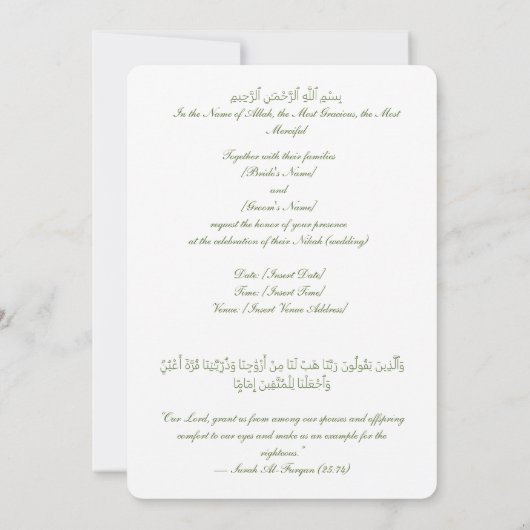 بِسْمِ ٱللَّهِ ٱلرَّحْمَـٰنِ ٱلرَّحِيمِ
In the Name of Allah, the Most Gracious, the Most
Merciful
Together with their families
[Bride's Name]
and
[Groom's Name]
request the honor of your presence
at the celebration of their Nikah (wedding)
Date: [Insert Date]
Time: [Insert Time]
Venue: [Insert Venue Address]
وَٱلَّذِينَ يَقُولُونَ رَبَّنَا هَبْ لَنَا مِنْ أَزْوَٰجِنَا وَذُرِّيَّـٰتِنَا قُرَّةَ أَعْيُنٍۢ
وَٱجْعَلْنَا لِلْمُتَّقِينَ إِمَامًا
"Our Lord, grant us from among our spouses and offspring
comfort to our eyes and make us an example for the
righteous."
— Surah Al-Furqan (25:74)